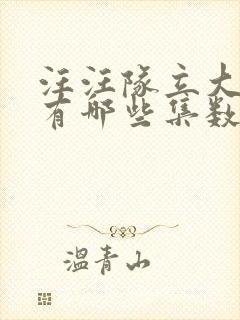 汪汪队立大
有哪些集数
温青山